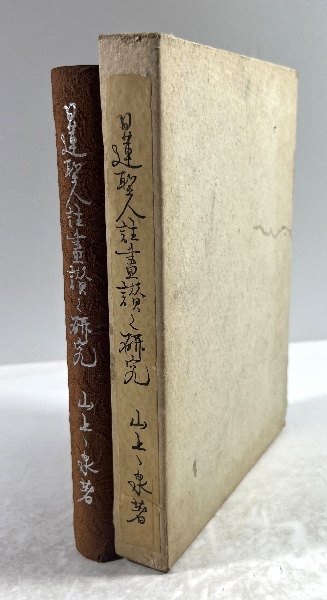 日蓮聖人註畫讃之研究 山上ゝ泉著
日蓮聖人註畫讃之研究 山上ゝ泉著